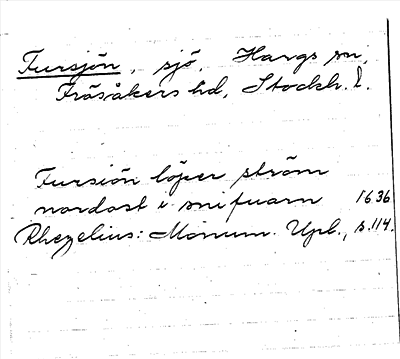 Fursjön, sjö, Hargs sn,
Fräsåkers hd, Stockh. l.
Fursiön löper ström
nordost i snifuarn 1636
Rhezelius: Monum. Upl., s.114.